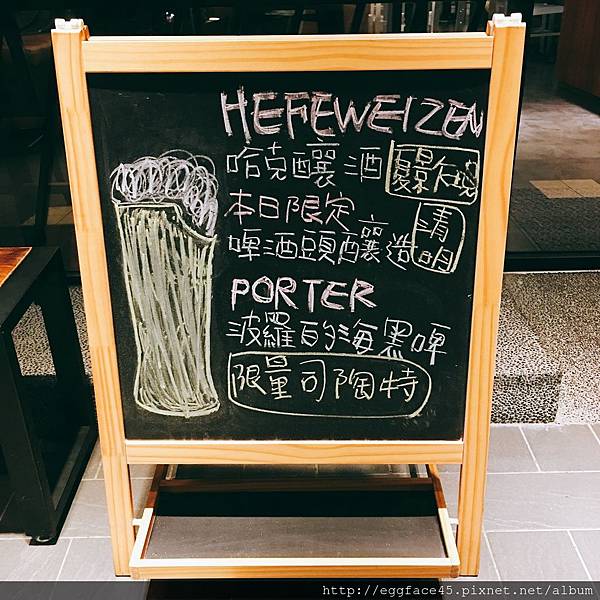 HEFEWEIZEN
哈克釀酒 夏景入境
本日限定
啤酒頭釀造 清明
PORTER
波羅的海黑啤
限量司陶特
http://eggface45.pixnet.net/album